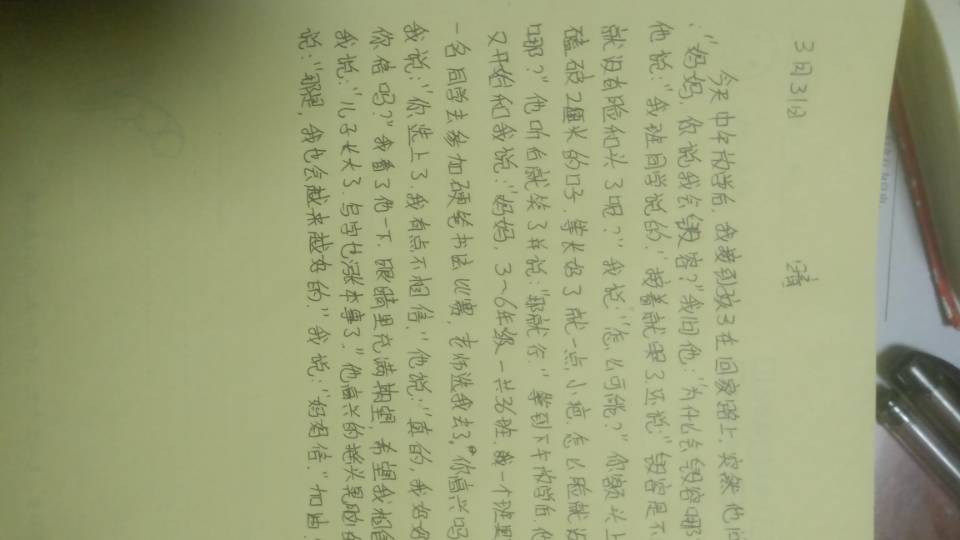 3月31日 晴
今天中午放学后，我接到孩子在回家路上，突然他问
："妈妈，你说我会毁容？"我问他："为什么会毁容哪
他说："我班同学说的，"接着就哭了还说："毁容是不
就没有脸和头了呢？"我说："怎么可能？"你额头上
磕破2厘米的口子，等长好了就一点小疤，怎么脸就没
哪？"他听后就笑了并说："那就行。"等到下午放学后，他
又开始和我说："妈妈，3~6年级一共36班，我一个班里
一名同学去参加硬笔书法比赛，老师选我去了，你高兴吗
我说："你选上了，我有点不相信，"他说："真的，我妈妈
你信吗？"我看了他一下，眼睛里充满期望，希望我相信
我说："儿子长大了，写字也涨本事了。"他高兴的摇头晃脑的
说："那是，我也会越来越好的，"我说："妈妈信，"加油